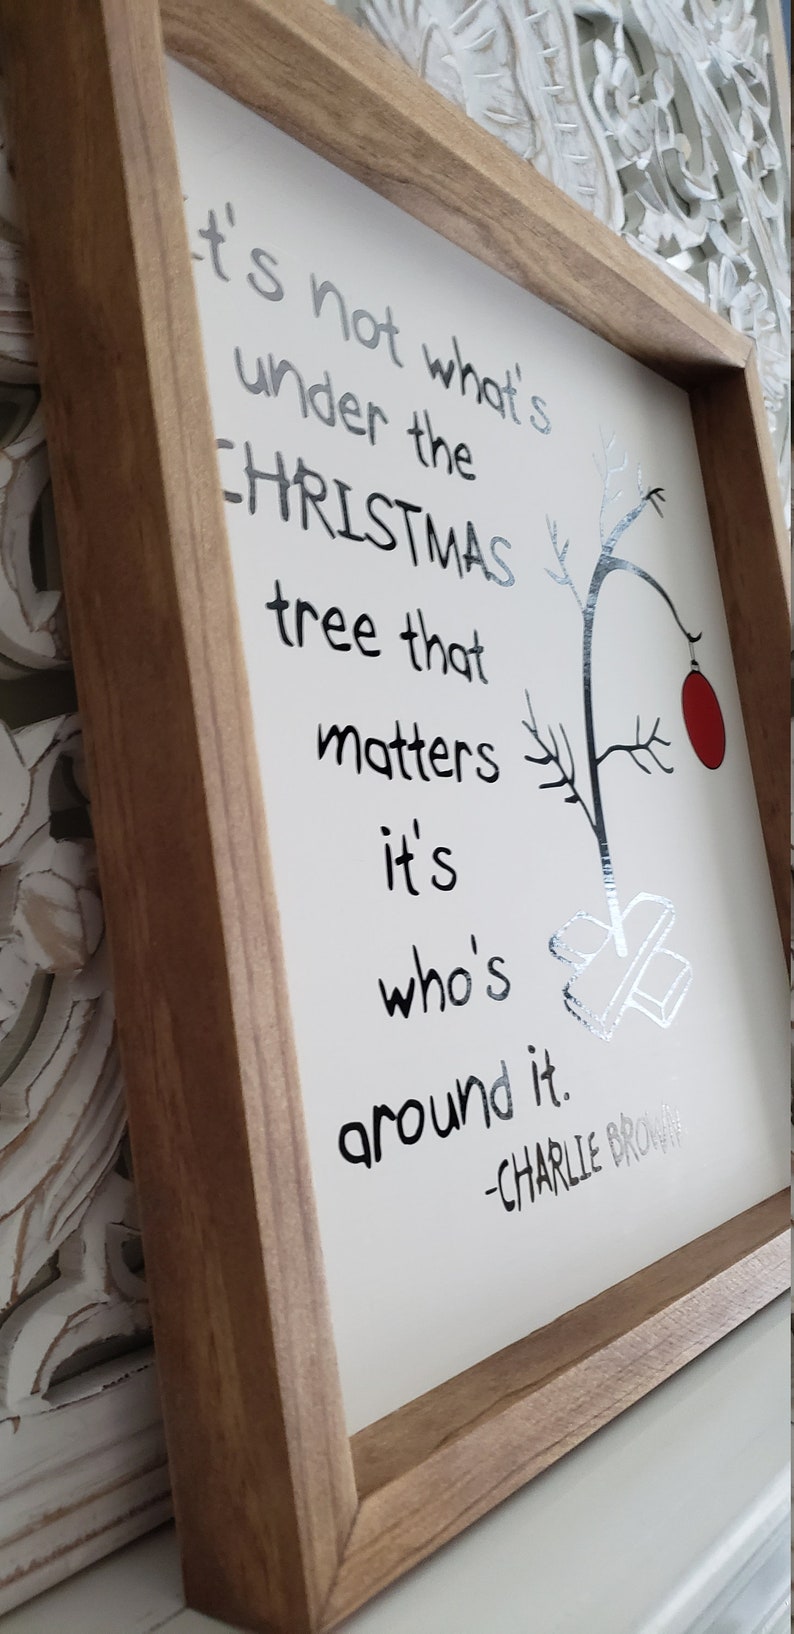 It's not what's
under the
CHRISTMAS
tree that
matters
it's
who's
around it.
-CHARLIE BROWN